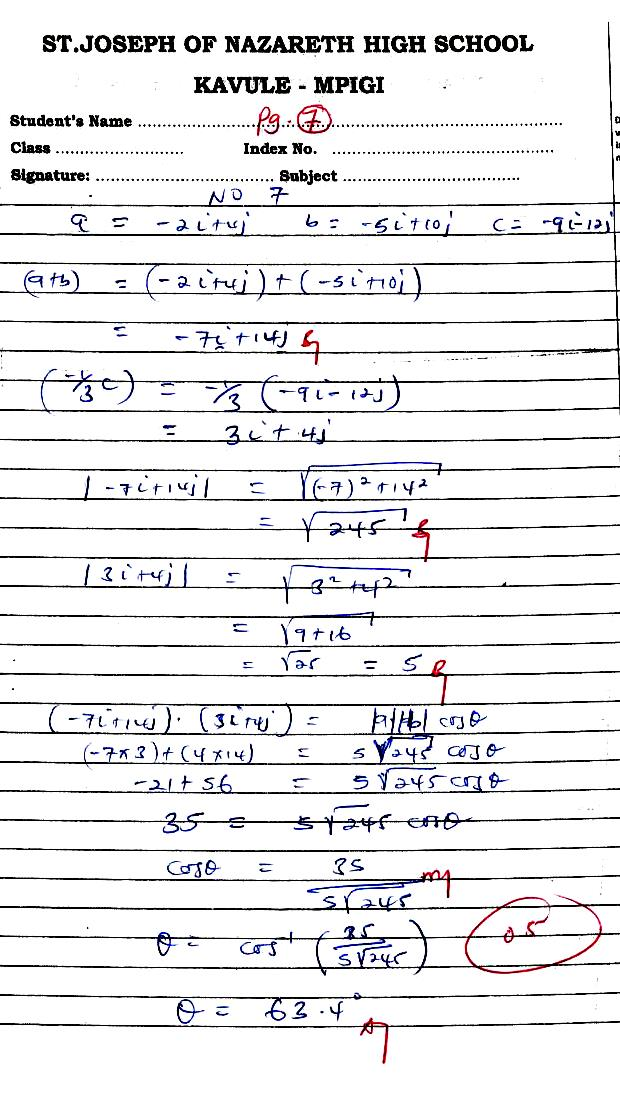 ST.JOSEPH OF NAZARETH HIGH SCHOOL
KAVULE - MPIGI
Student's Name ........ Pg. 7 ........
Class ........ Index No. ........
Signature: ........ Subject ........
NO 7
a = -2i+4j b = -5i+10j c = -9i-12j
(a+b) = (-2i+4j)+(-5i+10j)
= -7i+14j
(-1/3 c) = -1/3 (-9i-12j)
= 3i+4j
|-7i+14j| = √((-7)²+14²)
= √245
|3i+4j| = √(3²+4²)
= √(9+16)
= √25 = 5
(-7i+14j)·(3i+4j) = |a||b| cosθ
(-7×3)+(4×14) = 5√245 cosθ
-21+56 = 5√245 cosθ
35 = 5√245 cosθ
cosθ = 35/(5√245)
θ = cos⁻¹(35/(5√245))
05
θ = 63.4°